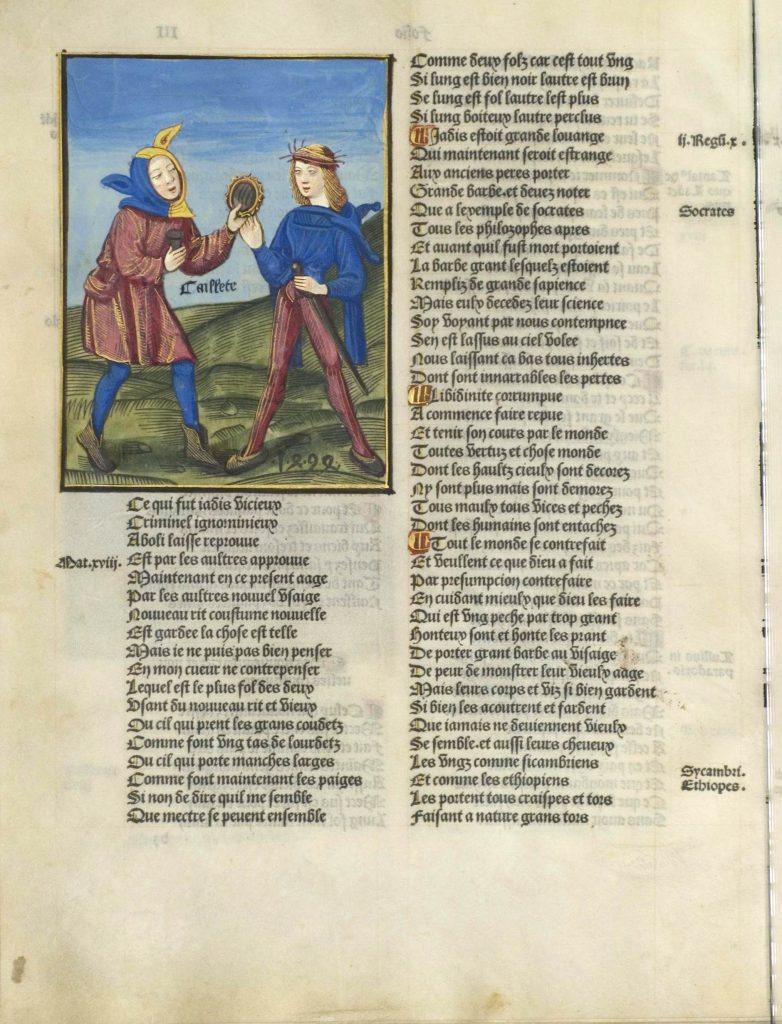 Caillete
.1.2.9.2.
Ce qui fut iadis vicieux
Criminel ignominieux
Aboli laisse reprouue
Mat.xviii.
Est par les aultres approuue
Maintenant en ce present aage
Par les aultres nouuel vsaige
Nouueau rit coustume nouuelle
Est gardee la chose est telle
Mais ie ne puis pas bien penser
En mon cueur ne contrepenser
Lequel est le plus fol des deux
Vsant du nouueau rit et vieux
Ou cil qui prent les grans coudetz
Comme font vng tas de lourdetz
Ou cil qui porte manches larges
Comme font maintenant les paiges
Si non de dire quil me semble
Que mectre se peuent ensemble
Comme deux folz car cest tout vng
Si lung est bien noir lautre est brun
Se lung est fol lautre lest plus
Si lung boiteux lautre perclus
Iadis estoit grande louange
ij. Regū.x.
Qui maintenant seroit estrange
Aux anciens peres porter
Grande barbe.et deuez noter
Que a lexemple de socrates
Socrates
Tous les philozophes apres
Et auant quil fust mort portoient
La barbe grant lesquelz estoient
Rempliz de grande sapience
Mais eulx decedez leur science
Soy voyant par nous contempnee
Sen est lassus au ciel volee
Nous laissant ca bas tous inhertes
Dont sont innarrables les pertes
Libidinite corrumpue
A commence faire repue
Et tenir son cours par le monde
Toutes vertuz et chose monde
Dont les haultz cieulx sont decorez
Ny sont plus mais sont demorez
Tous maulx tous vices et pechez
Dont les humains sont entachez
Tout le monde se contrefait
Et veullent ce que dieu a fait
Par presumpcion contrefaire
En cuidant mieulx que dieu les faire
Qui est vng peche par trop grant
Honteux sont et honte les prant
De porter grant barbe au visaige
De peur de monstrer leur vieulx aage
Mais leurs corps et viz si bien gardent
Si bien les acoutrent et fardent
Que iamais ne deuiennent vieulx
Se semble.et aussi leurs cheueux
Les vngz comme sicambriens
Sycambri.
Et comme les ethiopiens
Ethiopes.
Les portent tous craispes et tors
Faisant a nature grans tors